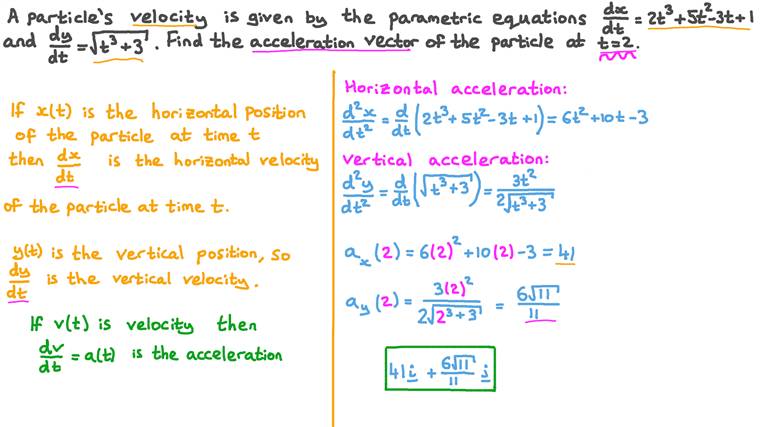 A particle's velocity is given by the parametric equations dx/dt = 2t³+5t²-3t+1
and dy/dt = √(t³+3). Find the acceleration vector of the particle at t=2.
If x(t) is the horizontal position
of the particle at time t
then dx/dt is the horizontal velocity
of the particle at time t.
y(t) is the vertical position, so
dy/dt is the vertical velocity.
If v(t) is velocity then
dv/dt = a(t) is the acceleration
Horizontal acceleration:
d²x/dt² = d/dt(2t³+5t²-3t+1) = 6t²+10t-3
Vertical acceleration:
d²y/dt² = d/dt(√(t³+3)) = 3t²/(2√(t³+3))
aₓ(2) = 6(2)²+10(2)-3 = 41
a_y(2) = 3(2)²/(2√(2³+3)) = 6√11/11
41i + 6√11/11 j